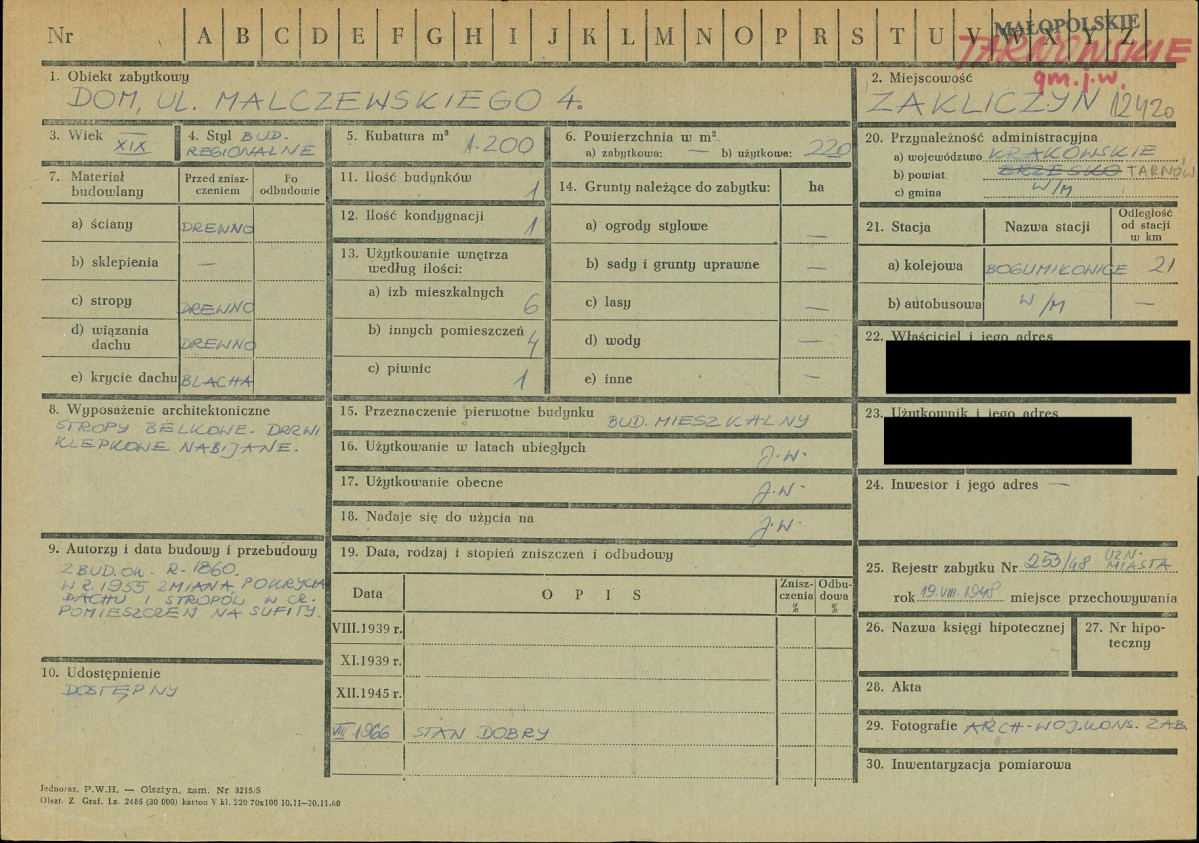 Nr A B C D E F G H I J K L M N O P R S T U V W X Y Z
MAŁOPOLSKIE
TARNOWSKIE
gm. j.w.
1. Obiekt zabytkowy
DOM, UL. MALCZEWSKIEGO 4.
2. Miejscowość
ZAKLICZYN 12420
3. Wiek XIX
4. Styl BUD. REGIONALNE
5. Kubatura m³ 1.200
6. Powierzchnia w m²
a) zabytkowa: — b) użytkowa: 220
7. Materiał budowlany
Przed zniszczeniem
Po odbudowie
a) ściany DREWNO
b) sklepienia —
c) stropy DREWNO
d) wiązania dachu DREWNO
e) krycie dachu BLACHA
8. Wyposażenie architektoniczne
STROPY BELKOWE. DRZWI
KLEPKOWE NABIJANE.
9. Autorzy i data budowy i przebudowy
ZBUD. OK. R. 1860.
W R. 1955 ZMIANA POKRYCIA
DACHU I STROPÓW W CZ.
POMIESZCZEŃ NA SUFITY.
10. Udostępnienie
DOSTĘPNY
11. Ilość budynków 1
12. Ilość kondygnacji 1
13. Użytkowanie wnętrza według ilości:
a) izb mieszkalnych 6
b) innych pomieszczeń 4
c) piwnic 1
14. Grunty należące do zabytku: ha
a) ogrody stylowe —
b) sady i grunty uprawne —
c) lasy —
d) wody —
e) inne —
15. Przeznaczenie pierwotne budynku BUD. MIESZKALNY
16. Użytkowanie w latach ubiegłych J.W.
17. Użytkowanie obecne J.W.
18. Nadaje się do użycia na J.W.
19. Data, rodzaj i stopień zniszczeń i odbudowy
Data OPIS Zniszczenia % Odbudowa %
VIII.1939 r.
XI.1939 r.
XII.1945 r.
VII.1966 STAN DOBRY
20. Przynależność administracyjna
a) województwo KRAKOWSKIE
b) powiat BRZESKO TARNÓW
c) gmina W/M
21. Stacja Nazwa stacji Odległość od stacji w km
a) kolejowa BOGUMIŁOWICE 21
b) autobusowa W/M —
22. Właściciel i jego adres
23. Użytkownik i jego adres
24. Inwestor i jego adres —
25. Rejestr zabytku Nr 253/48 UZN. MIASTA
rok 19.VIII.1948 miejsce przechowywania
26. Nazwa księgi hipotecznej
27. Nr hipoteczny
28. Akta
29. Fotografie ARCH. WOJ. KONS. ZAB.
30. Inwentaryzacja pomiarowa
Jednoraz. P.W.H. — Olsztyn, zam. Nr 3215/S
Olszt. Z Graf. Lz. 2485 (30 000) karton V kl. 220 70x100 10.11—30.11.60